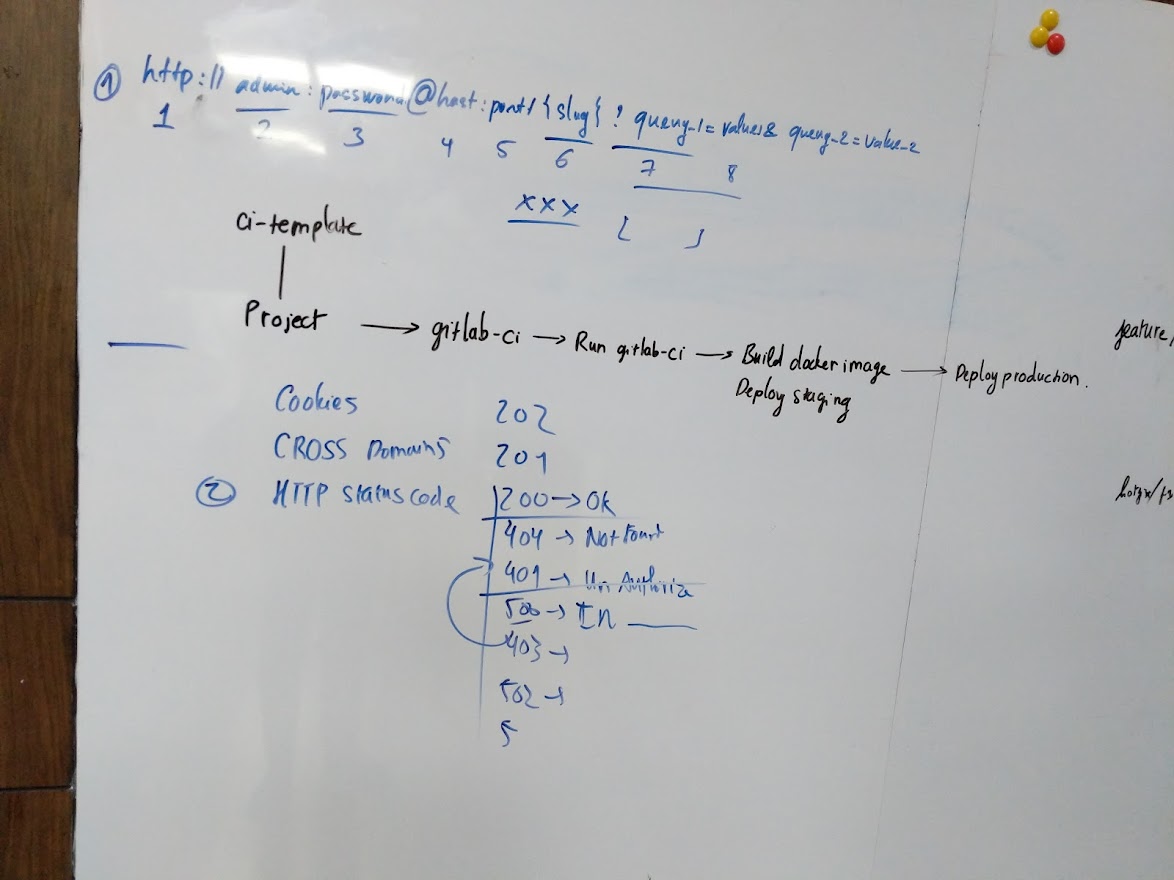 ① http:// admin : password @host : port / {slug} ? query_1 = value1 & query_2 = value_2
1 2 3 4 5 6 7 8
xxx [ ]
ci-template
Project → gitlab-ci → Run gitlab-ci → Build docker image → Deploy production.
Deploy staging
feature/
Cookies 202
CROSS Domains 201
② HTTP status code 200 → Ok
404 → Not Fount
401 → Un Authoriz
500 → IN
403 →
502 →
5